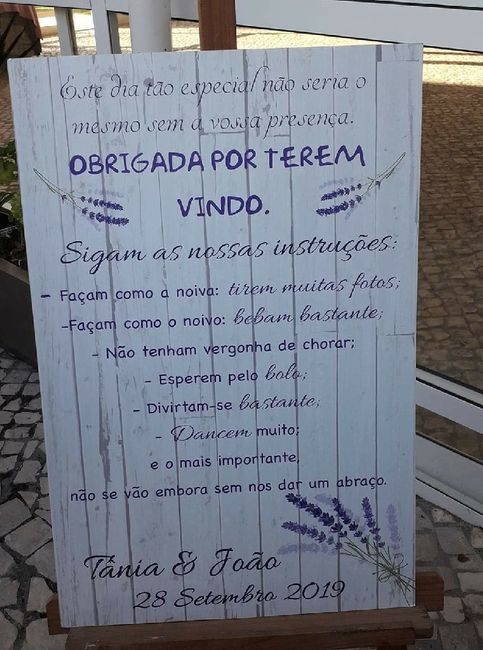 Este dia tão especial não seria o
mesmo sem a vossa presença.
OBRIGADA POR TEREM
VINDO.
Sigam as nossas instruções:
- Façam como a noiva: tirem muitas fotos;
-Façam como o noivo: bebam bastante;
- Não tenham vergonha de chorar;
- Esperem pelo bolo;
- Divirtam-se bastante;
- Dancem muito;
e o mais importante,
não se vão embora sem nos dar um abraço.
Tânia & João
28 Setembro 2019